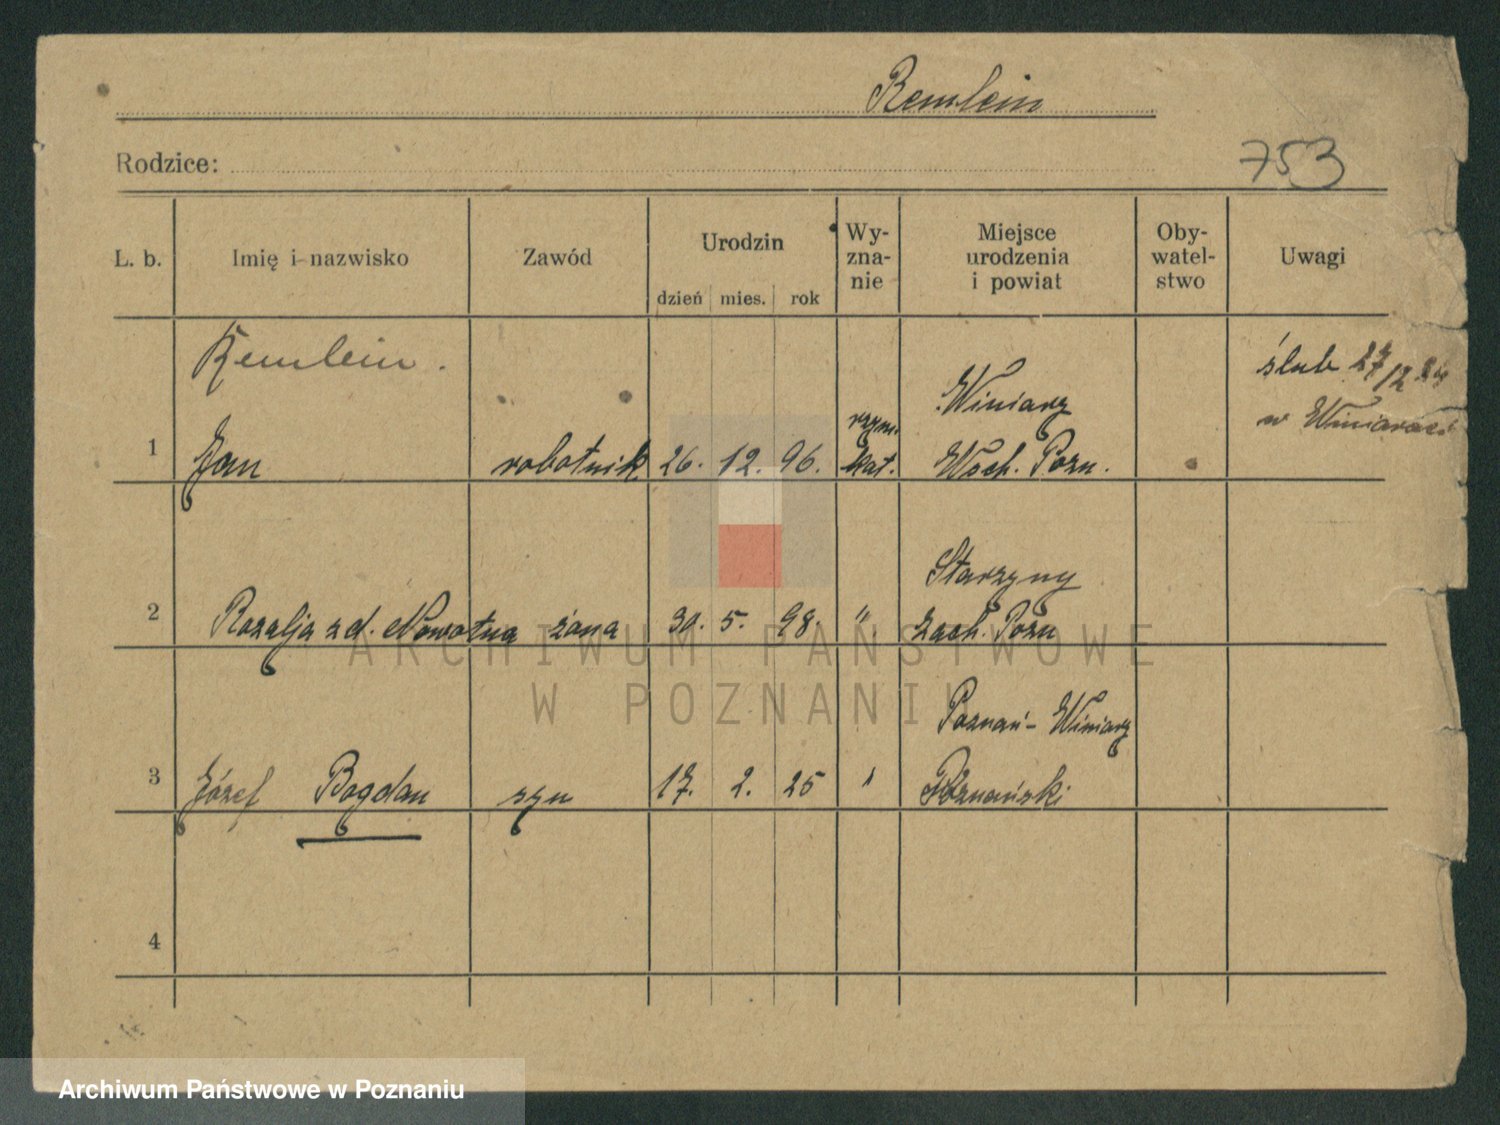 Remlein
Rodzice:
753
L. b.
Imię i nazwisko
Zawód
Urodzin
dzień mies. rok
Wy-
zna-
nie
Miejsce
urodzenia
i powiat
Oby-
watel-
stwo
Uwagi
Remlein.
1 Jan robotnik 26. 12. 96. rzym.
kat.
Winiary
Wsch. Pozn.
ślub 27/12 24
w Winiarach
2 Rozalja z d. Nowotna żona 30. 5. 98. "
Starzyny
Zach. Pozn
3 Józef Bogdan syn 17. 2. 25 "
Poznań-Winiary
Poznański
4
ARCHIWUM PAŃSTWOWE
W POZNANIU
Archiwum Państwowe w Poznaniu